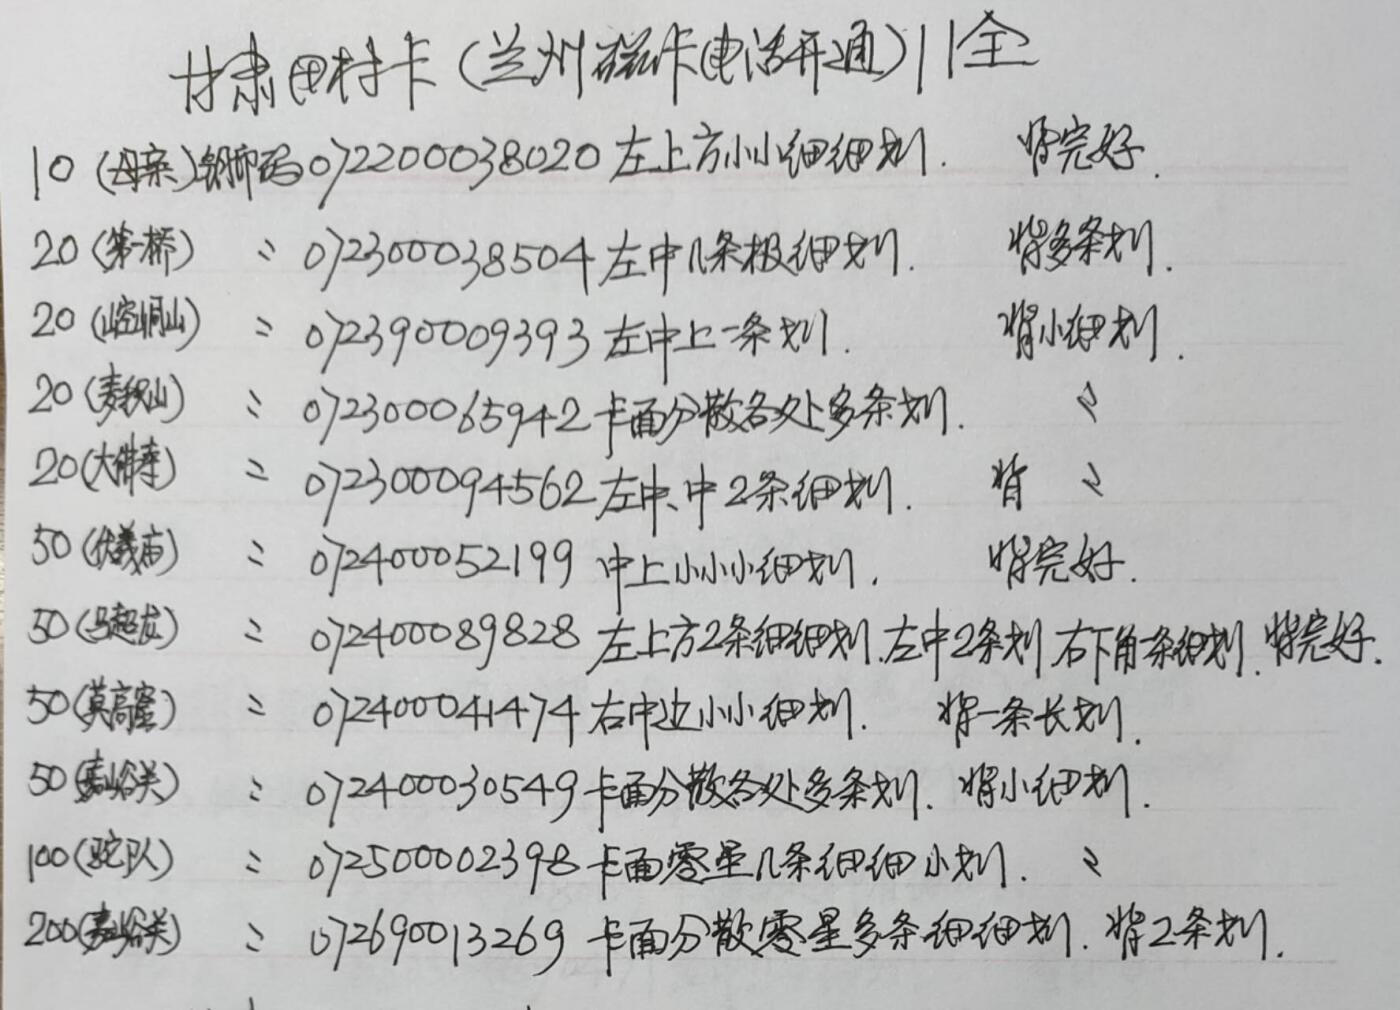 甘肃田村卡(兰州磁卡电话开通)11全
10(母亲)钢印码072200038020左上方小小细细划. 背完好.
20(第一桥) 〃 072300038504左中几条极细划. 背多条划.
20(崆峒山) 〃 072390009393左中上一条划. 背小细划.
20(麦积山) 〃 072300065942卡面分散各处多条划. 〃
20(大佛寺) 〃 072300094562左中、中2条细划. 背 〃
50(伏羲庙) 〃 072400052199 中上小小小细划. 背完好.
50(马超龙) 〃 072400089828 左上方2条细细划.左中2条划.右下角一条细划. 背完好.
50(莫高窟) 〃 072400041474右中边小小细划. 背一条长划.
50(嘉峪关) 〃 072400030549卡面分散各处多条划. 背小细划.
100(驼队) 〃 072500002398卡面零星几条细细小划. 〃
200(嘉峪关) 〃 072690013269 卡面分散零星多条细细划. 背2条划.